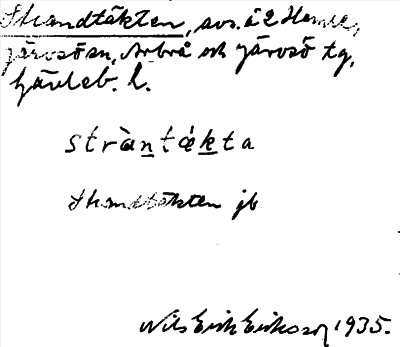 Strandtäkten, avs. å 2 Hamre,
Järvsö sn, Arbrå och Järvsö tg,
Gävleb. l.
stràntǽkta
Strandtäkten jb
Nils Erik Eriksson 1935.